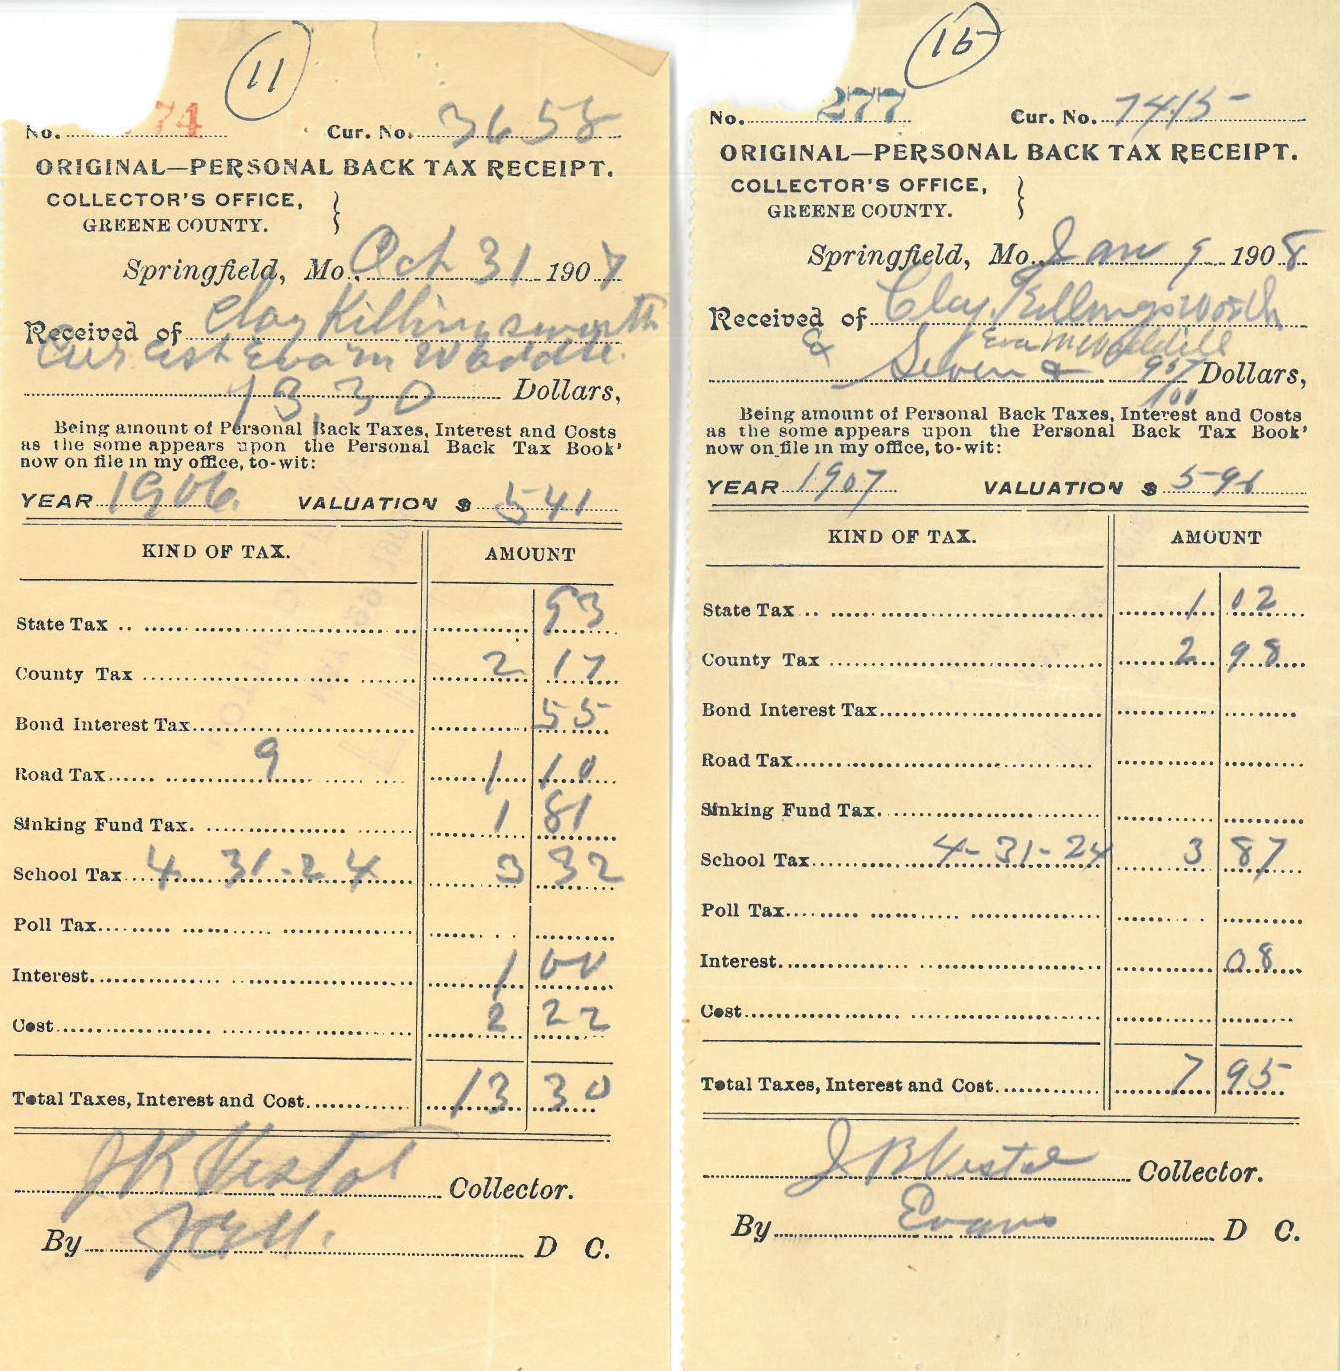 11
74
No. Cur. No. 3658
ORIGINAL—PERSONAL BACK TAX RECEIPT.
COLLECTOR'S OFFICE,
GREENE COUNTY.
Springfield, Mo., Oct 31 1907
Received of Clay Killingsworth
Cur est Eva M Waddle.
13 30 Dollars,
Being amount of Personal Back Taxes, Interest and Costs
as the some appears upon the Personal Back Tax Book'
now on file in my office, to-wit:
YEAR 1906. VALUATION $ 541
KIND OF TAX. AMOUNT
State Tax 93
County Tax 2 17
Bond Interest Tax 55
Road Tax 9 1 10
Sinking Fund Tax. 1 81
School Tax 4 31-24 3 32
Poll Tax
Interest 1 00
Cost 2 22
Total Taxes, Interest and Cost 13 30
Vestal Collector.
By D C.
15
No. 277 Cur. No. 7415
ORIGINAL—PERSONAL BACK TAX RECEIPT.
COLLECTOR'S OFFICE,
GREENE COUNTY.
Springfield, Mo. Jan 9 1908
Received of Clay Killingsworth
& Eva M
Seven & 95/100 Dollars,
Being amount of Personal Back Taxes, Interest and Costs
as the some appears upon the Personal Back Tax Book'
now on file in my office, to-wit:
YEAR 1907 VALUATION $ 596
KIND OF TAX. AMOUNT
State Tax 1 02
County Tax 2 98
Bond Interest Tax
Road Tax
Sinking Fund Tax.
School Tax 4-31-24 3 87
Poll Tax
Interest 08
Cost
Total Taxes, Interest and Cost 7 95
J B Vestal Collector.
By Evans D C.